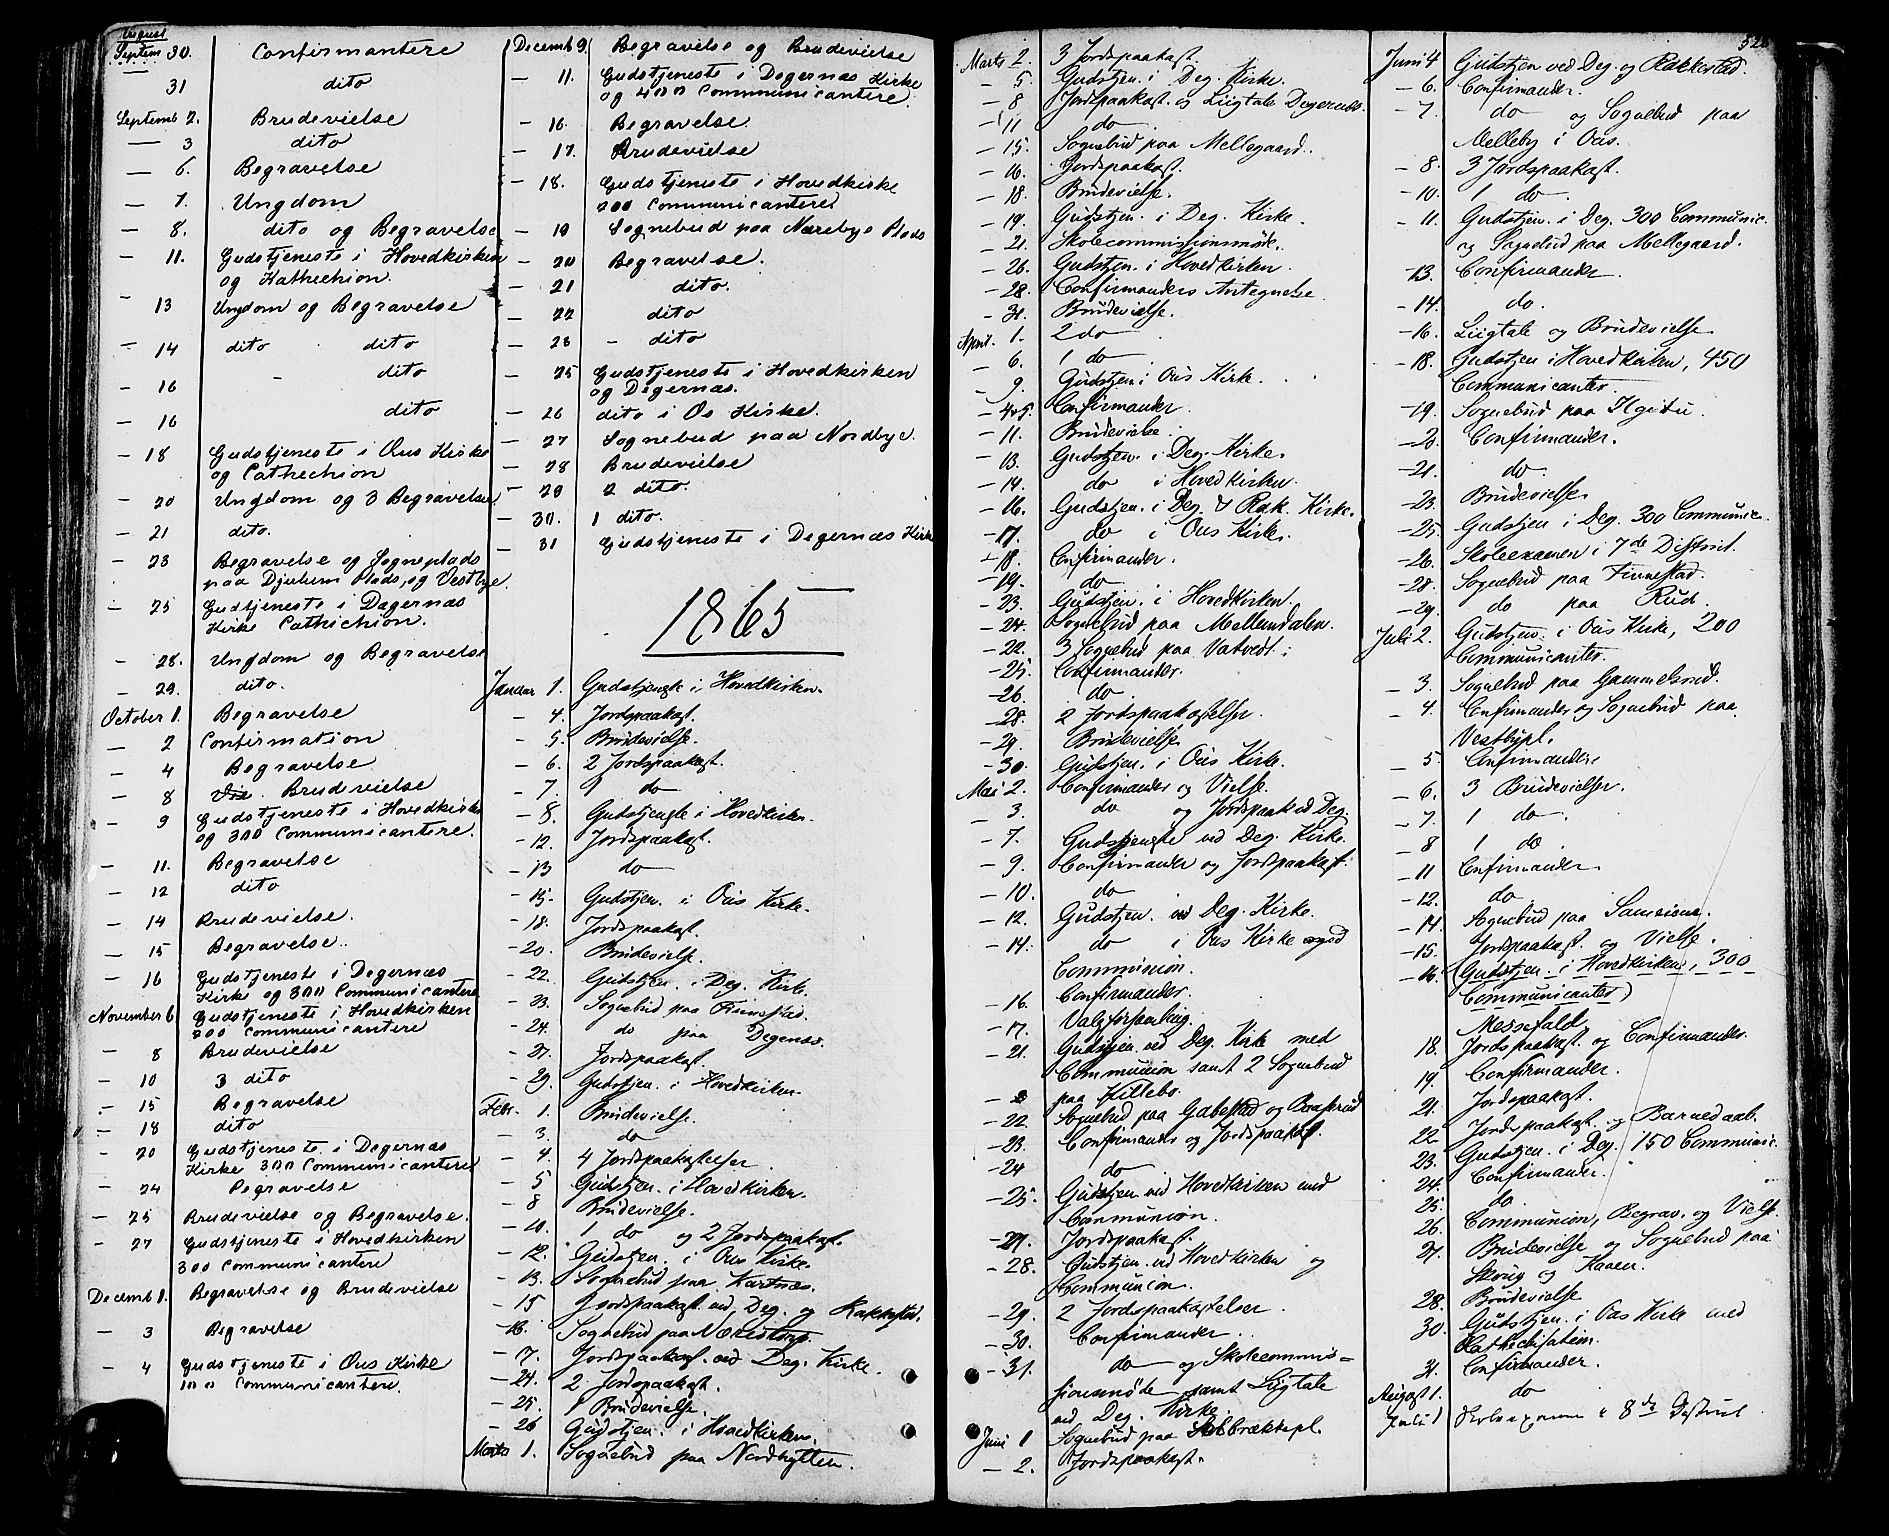 August
Septem 30. Confirmantere
— 31 dito
Septemb 2. Brudevielse
— 3 dito
— 6. Begravelse
— 7. Ungdom
— 8. dito og Begravelse
— 11. Gudstjeneste i Hovedkirken
og Kathechion.
— 13 Ungdom og Begravelse
— 14 dito dito
— 16 - dito
— 16 dito
— 18 Gudstjeneste i Ous Kirke
og Cathechion
— 20 Ungdom og 3 Begravelse
— 21 dito.
— 23 Begravelse og Sogneplads
paa Plads, og Vestbye.
— 25 Gudtjeneste i Degernæs
Kirke Cathichion.
— 28. Ungdom og Begravelse
— 29. dito.
October 1. Begravelse
— 2 Confirmation
— 4 Begravelse
— 8 Brudevielse
— 9 Gudstjeneste i Hovedkirke
og 300 Communicantere.
— 11. Begravelse
— 12 dito
— 14 Brudevielse.
— 15 Begravelse.
— 16 Gudstjeneste i Degernæs
Kirke og 300 Communicantere
November 6 Gudstjeneste i Hovedkirken
200 Communicantere
— 8 Brudevielse
— 10 3 dito
— 15 Begravelse
— 18 dito
— 20 Gudstjeneste i Degernæs
Kirke 300 Communicantere
— 24 Begravelse
— 25 Brudevielse og Begravelse.
— 27 Gudstjeneste i Hovedkirken
300 Communicantere
Decemb 1. Begravelse og Brudevielse
— 3 Begravelse
— 4 Gudstjeneste i Ous Kirke
100 Communicantere.
Decemb 9. Begravelse og Brudevielse
— 11. Gudstjeneste i Degernæs Kirke
og 400 Communicantere.
— 16. Begravelse.
— 17. Brudevielse
— 18. Gudstjeneste i Hovedkirke
200 Communicantere
— 19 Sognebud paa Nærebye Plads
— 20 Begravelse.
— 21 dito.
— 22 dito
— 23 - dito
— 25 Gudstjeneste i Hovedkirken
og Degernæs.
— 26 dito i Os Kirke.
— 27 Sognebud paa Nordbye.
— 28 Brudevielse
— 29 2 dito.
— 30. 1 dito.
— 31 Gudstjeneste i Degernæs Kirke
1865
Januar 1. Gudstjeneste i Hovedkirken.
— 4. Jordspaakast.
— 5. Brudevielse.
— 6. 2 Jordspaakast.
— 7. 1 do
— 8. Gudstjeneste i Hovedkirken.
— 12. Jordspaakast.
— 13 do
— 15. Gudstjen. i Ous Kirke.
— 18. Jordspaakast.
— 20. Brudevielse.
— 22. Gudstjen. i Deg. Kirke.
— 23. Sognebud paa Finnestad.
— 24. do paa Degernæs.
— 27. Jordspaakast.
— 29. Gudstjen. i Hovedkirken.
Febr. 1. Brudevielse.
— 3. do
— 4. 4 Jordspaakastelser
— 5 Gudstjen. i Hovedkirken.
— 8 Brudevielse.
— 10. 1 do og 2 Jordspaakast.
— 12. Gudstjen. i Ous Kirke.
— 13. Sognebud paa Kartnæs.
— 15 Jordspaakast ved Deg. og Rakkestad.
— 16. Sognebud paa
— 17. Jordspaakast. ved Deg. Kirke.
— 24. 2 Jordspaakast.
— 25. 1 Brudevielse.
— 26 Gudstjen. i Hovedkirken.
Marts 1. Sognebud paa Nordhytten.
Marts 2. 3 Jordspaakast.
— 5 Gudstjen. i Deg. Kirke.
— 8 Jordspaakast. og Liigtale Degernæs.
— 11 do
— 15. Sognebud paa Mellegaard.
— 16. Jordspaakast.
— 18. Brudevielse.
— 19. Gudstjen. i Deg. Kirke.
— 21. Skolecommissionsmøde.
— 26. Gudstjen. i Hovedkirken.
— 28. Confirmanders Antegnelse.
— 31. Brudevielse.
April. 1. 2 do
— 6. 1 do
— 9. Gudstjen i Ous Kirke.
— 4 5. Confirmander.
— 11. Brudevielse.
— 13. Gudstjen. i Deg. Kirke.
— 14. do i Hovedkirken.
— 16. Gudstjen. i Deg. & Rak. Kirke.
— 17. do i Ous Kirke.
— 18. Confirmander.
— 19. do
— 23. Gudstjen. i Hovedkirken.
— 24. Sognebud paa Mellemdalen.
— 22. 3 Sognebud paa Vatvedt.
— 25. Confirmander.
— 26. do.
— 28. 2 Jordspaakastelser.
— 29. Brudevielse.
— 30. Gudstjen. i Ous Kirke.
Mai 2. Confirmander og Vielse.
— 3. do og Jordspaak ved Deg.
— 7. Gudstjeneste ved Deg. Kirke.
— 9. Confirmander og Jordpaakast.
— 10. do
— 12. Gudstjen. ved Deg. Kirke.
— 14. do i Ous Kirke med
Communion.
— 16. Confirmander.
— 17. Valgforsamling.
— 21. Gudstjen. ved Deg. Kirke med
Communion samt 2 Sognebud
paa Killebo.
— 22. Sognebud paa Gabestad og
— 23. Confirmander og Jordspaakast.
— 24 do
— 25. Gudstjen ved Hovedkirken med
Communion.
— 27. Jordspaakast.
— 28. Gudstjen. ved Hovedkirken og
Communion.
— 29. 2 Jordspaakastelser.
— 30. Confirmander.
— 31. do og Skolecommis=
sionsmøde samt Liigtale
ved Deg. Kirke.
Juni 1 Sognebud paa
— 2. Jordspaakast.
Juni 4 Gudstjen ved Deg. og Rakkestad.
— 6. Confirmander.
— 7. do og Sognebud paa
Melleby i Ous.
— 8. 3 Jordspaakast.
— 10. 1 do.
— 11. Gudstjen. i Deg. 300 Communic.
og Sognebud paa Mellegaard.
— 13. Confirmander.
— 14. do.
— 16. Liigtale og Brudevielse
— 18. Gudstjen i Hovedkirken, 450
Communicanter.
— 19. Sognebud paa
— 20. Confirmander.
— 21. do.
— 23. Brudevielse
— 25. Gudstjen i Deg. 300 Communic.
— 26. Skoleexamen i 7de District.
— 28. Sognebud paa Finnestad.
— 29. do paa Rud.
Juli 2. Gudstjen. i Ous Kirke, 200
Communicanter.
— 3. Sognebud paa Gammelsrud.
— 4. Confirmander og Sognebud paa
Vestbypl.
— 5 Confirmandere
— 6. 3 Brudevielser.
— 7. 1 do.
— 8 1 do.
— 11 Confirmander
— 12. do
— 14. Sognebud paa
— 15. Jordspaakast. og Vielse.
— 16. (Gudstjen. i Hovedkirken, 300
Communicanter)
Messefald
18. Jordspaakast. og Confirmander.
19. Confirmander.
21. Jordspaakast.
22 Jordspaakast. og Barnedaab.
23. Gudstjen. i Deg. 150 Communic.
24. Confirmander.
25. do
26. Communion, Begrav. og Vielse.
27. Brudevielse og Sognebud paa
Skoug og
28. Brudevielse
30. Gudstjen. i Ous Kirke med
Kathechisation.
31. Confirmander.
August 1. do
Juli 1 Skoleexamen i 8de District